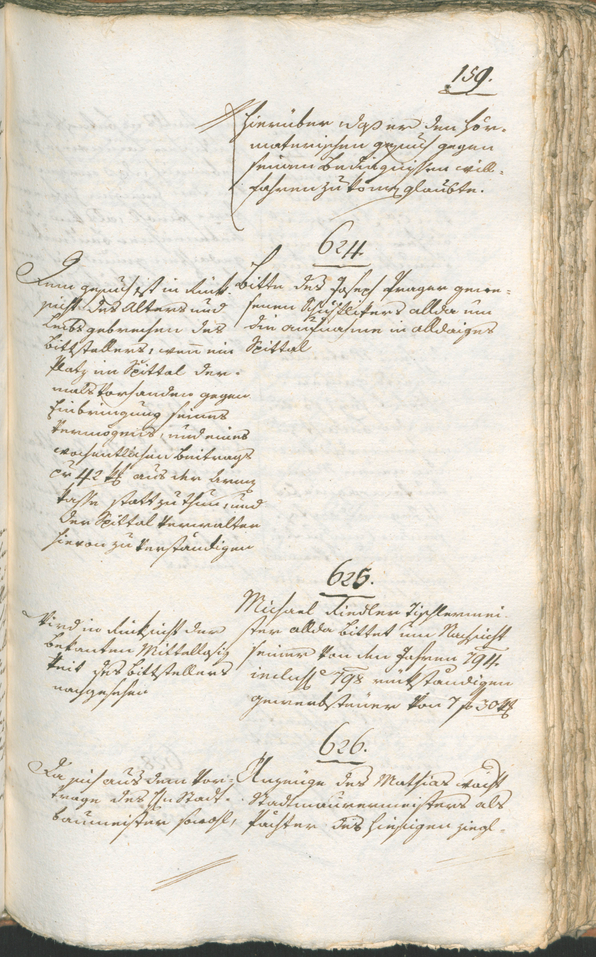 159.
hierüber daß er den Hör-
materischen gesuch gegen
seinen bedingnissen will-
fahren zu könen glaubte.
624.
Bitte des Joseph Prager gewe-
senen Schuhflikers allda um
die aufnahme in alldasiges
Spittal
Dem gesuch ist in Rück-
sicht des Alters und
Leibsgebrechen des
Bittstellers, wenn ein
Platz im Spittal der-
mals vorhanden gegen
Einbringung seines
Vermögens, und eines
wochentlichen Beitrags
pr 42 Xr aus der Armen
Kasse statt zu thun, und
der Spittal Verwalter
hievon zu verständigen
625.
Michael Fiedler Tischlermei-
ster allda bittet um Nachsicht
seiner von den Jahren 794.
inclus. 798 rückständigen
gewerbsteuer von 7 f 30 Xr
Wird in Rücksicht der
bekanten Mittellosig-
keit des Bittstellers
nachgesehen
626.
Anzeige des Mathias
Stadtmaurermeisters als
Pächter des hiesigen Ziegl-
Da sich aus dem Vor-
trage des Hn Stadt-
baumeister sowohl,